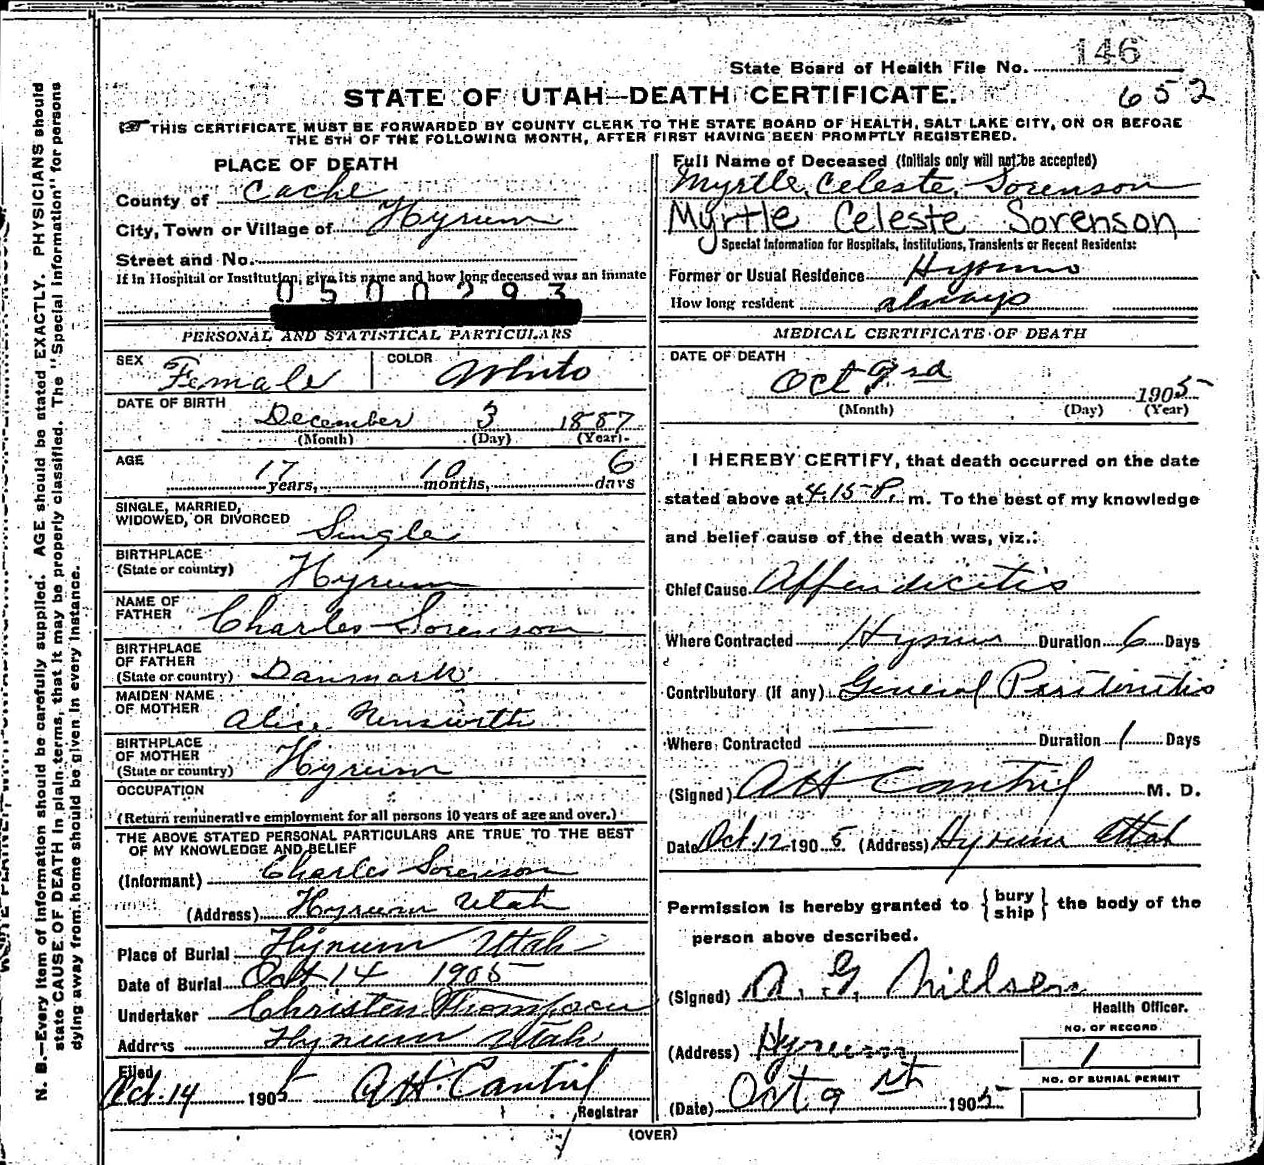 146
State Board of Health File No.
652
STATE OF UTAH—DEATH CERTIFICATE.
THIS CERTIFICATE MUST BE FORWARDED BY COUNTY CLERK TO THE STATE BOARD OF HEALTH, SALT LAKE CITY, ON OR BEFORE
THE 5TH OF THE FOLLOWING MONTH, AFTER FIRST HAVING BEEN PROMPTLY REGISTERED.
N. B.—Every item of information should be carefully supplied. AGE should be stated EXACTLY. PHYSICIANS should
state CAUSE OF DEATH in plain terms, that it may be properly classified. The "Special Information" for persons
dying away from home should be given in every instance.
PLACE OF DEATH
County of Cache
City, Town or Village of Hyrum
Street and No.
If in Hospital or Institution, give its name and how long deceased was an inmate
0500293
PERSONAL AND STATISTICAL PARTICULARS
SEX Female COLOR White
DATE OF BIRTH
December 3 1887
(Month) (Day) (Year)
AGE
17 years, 10 months, 6 days
SINGLE, MARRIED,
WIDOWED, OR DIVORCED Single
BIRTHPLACE
(State or country) Hyrum
NAME OF
FATHER Charles Sorenson
BIRTHPLACE
OF FATHER
(State or country) Danmark
MAIDEN NAME
OF MOTHER Alice
BIRTHPLACE
OF MOTHER
(State or country) Hyrum
OCCUPATION
(Return remunerative employment for all persons 10 years of age and over.)
THE ABOVE STATED PERSONAL PARTICULARS ARE TRUE TO THE BEST
OF MY KNOWLEDGE AND BELIEF
(Informant) Charles Sorenson
(Address) Hyrum Utah
Place of Burial Hyrum Utah
Date of Burial Oct 14 1905
Undertaker Christen Thompson
Address Hyrum Utah
Filed
Oct. 14 1905 AH. Cantril
Registrar
Full Name of Deceased (Initials only will not be accepted)
Myrtle Celeste Sorenson
Myrtle Celeste Sorenson
Special Information for Hospitals, Institutions, Transients or Recent Residents:
Former or Usual Residence Hyrum
How long resident always
MEDICAL CERTIFICATE OF DEATH
DATE OF DEATH
Oct 1905
(Month) (Day) (Year)
I HEREBY CERTIFY, that death occurred on the date
stated above at 4.15 P. m. To the best of my knowledge
and belief cause of the death was, viz.:
Chief Cause Appendicitis
Where Contracted Hyrum Duration 6 Days
Contributory (if any) General Peritonitis
Where Contracted Duration 1 Days
(Signed) AH Cantril M. D.
Date Oct. 12 1905 (Address) Hyrum Utah
Permission is hereby granted to {bury ship} the body of the
person above described.
(Signed) N. G. Nillsen
Health Officer.
(Address) Hyrum
NO. OF RECORD
1
NO. OF BURIAL PERMIT
(Date) Oct 9 1905
(OVER)